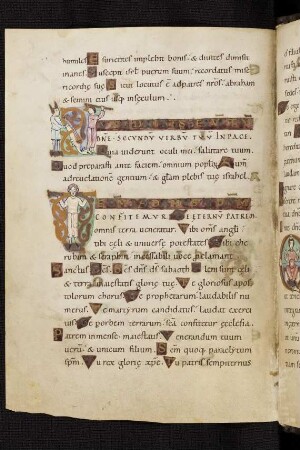 humiles Esurientes implebit bonis & diuites dimisit
inanes Suscepit isr̄l puerum suum recordatus mise
ricordię suę Sicut locutus ē adpatres nr̄os abraham
& semini eius usq; insęculum
DN̄E SECUNDŪ VERBŪ TUŪ INPACE
Quia uiderunt oculi mei salutare tuum
Quod parasti ante faciem omnium populorum
adreuelationem gentium & glam plebis tuę israhel
CONFITEMUR TE ETERNŪ PATREM
omnis terra ueneratur Tibi om̄s angli
tibi cęli & uniuersę potestates Tibi che
rubim & seraphin incessabili uoce proclamant
Sanctus Scs̄ Scs̄ dn̄s ds̄ sabaoth Pleni sunt cęli
& terra maiestatis glorię tuę Te gloriosus apos
tolorum chorus Te prophetarum laudabilis nu
merus Te martyrum candidatus laudat exerci
tus Te porbem terrarum sca confitetur ęcclesia
Patrem inmense maiestatis Venerandum tuum
uerū & unicum filium Scm̄ quoq; paraclytum
sp̄m Tu rex glorię xp̄e Tu patris sempiternus